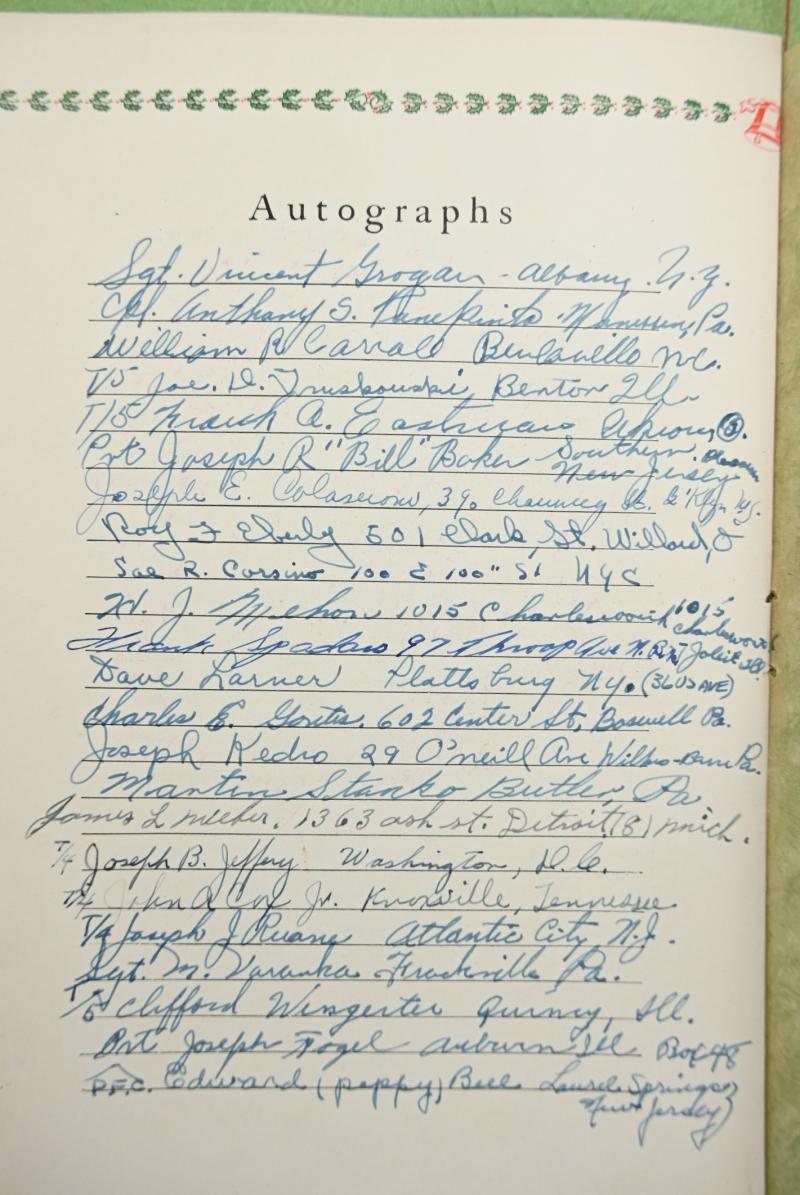 Autographs
Sgt. Vincent Grogan - Albany N.Y.
Cpl. Anthony S. Panepinto Monessen, Pa.
William R Carrale N.C.
T/5 Joe. D. Truskowski, Benton Ill.
T/5 Frank A. Eastman Akron, O.
Pvt Joseph R "Bill" Baker Southern
New Jersey
Joseph E. Colaserow, 390 Chauncey St. B'klyn N.Y.
Roy F Eberly 501 Clark St. Willard, O
Sal R. Corsino 100 E 100" St NYC
W. J. 1015 Charlesworth 1015
Charlesworth
Frank Spadaro 97 Throop Ave Joliet Ill.
Dave Larner Plattsburg N.Y. (36 US AVE)
Charles E. 602 Center St, Boswell Pa.
Joseph Kedro 29 O'neill Ave Wilkes-Barre Pa.
Martin Stanko Butler, Pa
James L 1363 ash st. Detroit (8) mich.
T/4 Joseph B. Jeffery Washington, D.C.
T/4 John A Cox Jr. Knoxville, Tennessee
T/4 Joseph J Ruane Atlantic City, N.J.
Sgt. M. Varanka Frackville Pa.
T/5 Clifford Wingerter Quincy, Ill.
Pvt Joseph Fogel Auburn Ill Box 48
P.F.C. Edward (pappy) Bell Laurel Springs
New Jersey